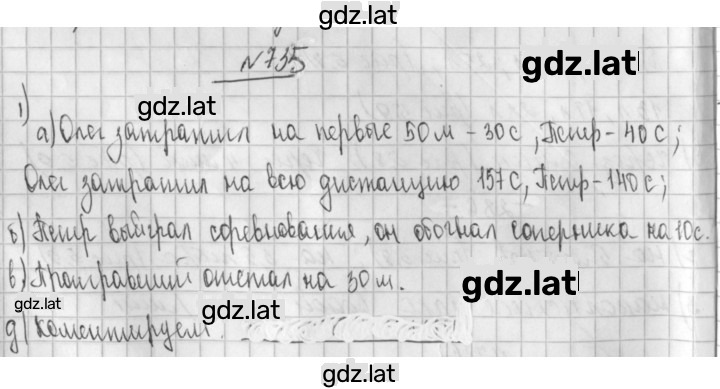 gdz.lat
№735
gdz.lat
gdz.lat
1)
а) Олег затратил на первые 50м - 30с, Петр - 40с;
Олег затратил на всю дистанцию 157с, Петр - 140с;
б) Петр выиграл соревнования, он обогнал соперника на 10с.
в) Проигравший отстал на 30м.
gdz.lat
gdz.lat
gdz.lat
д) Коментируем.
gdz.lat